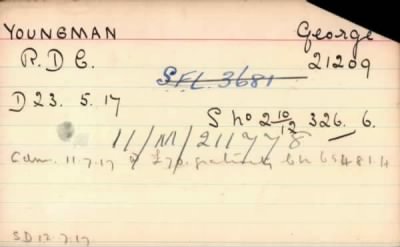 YOUNGMAN George
R.D.C. 21209
SFL. 3681
D 23. 5. 17
S No 2 10/12 326. 6.
11/M/211778
11.7.17
SD 12.7.17